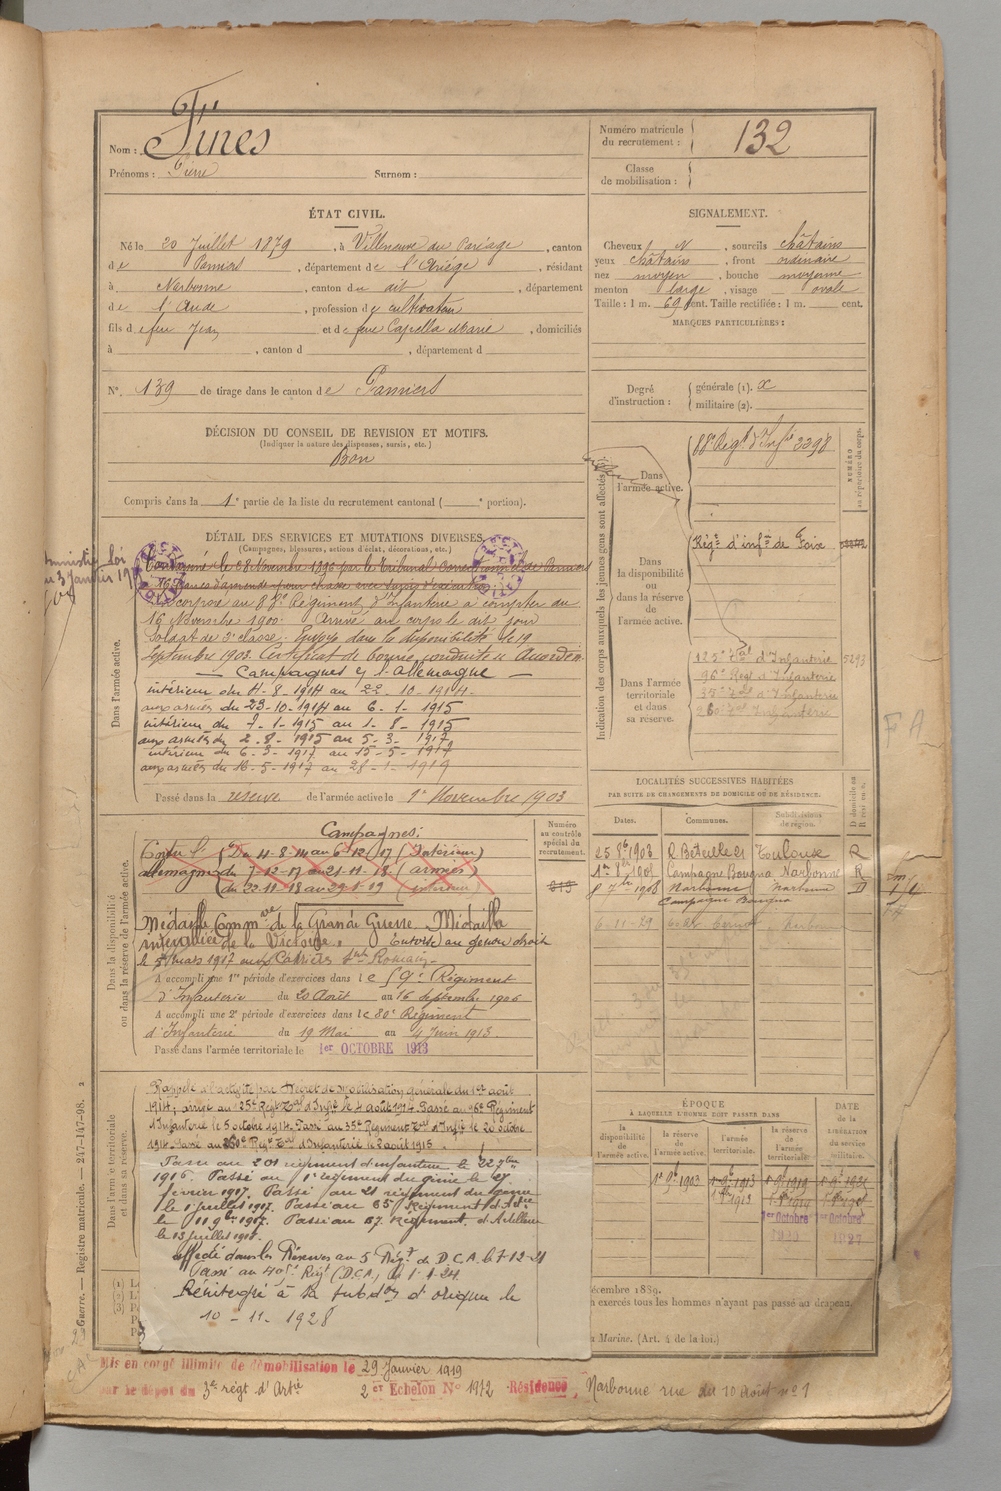 Nom : Fines
Prénoms : Pierre Surnom :
Numéro matricule du recrutement : 132
Classe de mobilisation :
ÉTAT CIVIL.
Né le 20 Juillet 1879, à Villeneuve du Paréage, canton
de Pamiers, département de l'Ariége, résidant
à Narbonne, canton du dit, département
de l'Aude, profession de cultivateur
fils de feu Jean et de feue Capella Marie, domiciliés
à , canton d , département d
N°. 139 de tirage dans le canton de Pamiers
SIGNALEMENT.
Cheveux N, sourcils châtains
yeux châtains, front ordinaire
nez moyen, bouche moyenne
menton large, visage ovale
Taille : 1 m. 69 cent. Taille rectifiée : 1 m. cent.
MARQUES PARTICULIÈRES :
Degré d'instruction : générale (1). x
militaire (2).
DÉCISION DU CONSEIL DE REVISION ET MOTIFS.
(Indiquer la nature des dispenses, sursis, etc.)
Bon
Compris dans la 1e partie de la liste du recrutement cantonal ( e portion).
DÉTAIL DES SERVICES ET MUTATIONS DIVERSES.
(Campagnes, blessures, actions d'éclat, décorations, etc.)
Dans l'armée active.
corporé au 88e Régiment d'Infanterie à compter du
16 Novembre 1900. Arrivé au corps le dit jour
Soldat de 2e classe. Envoyé dans la disponibilité le 19
Septembre 1903. Certificat de bonne conduite "Accordé"
Campagnes c/ l'Allemagne
intérieur du 4-8-1914 au 22-10-1914.
aux armées du 23-10-1914 au 6-1-1915
intérieur du 7-1-1915 au 1-8-1915
aux armées du 2-8-1915 au 5-3-1917
intérieur du 6-3-1917 au 15-5-1917
aux armées du 16-5-1917 au 28-1-1919
Passé dans la réserve de l'armée active le 1er Novembre 1903
Indication des corps auxquels les jeunes gens sont affectés
Dans l'armée active.
88e Régt d'Infie 2398
NUMÉRO au répertoire du corps.
Dans la disponibilité ou dans la réserve de l'armée active.
Régt d'infie de Foix
Dans l'armée territoriale et dans sa réserve.
125e Tal d'Infanterie 5293
96e Régt d'Infanterie
35e Tal d'Infanterie
FA
LOCALITÉS SUCCESSIVES HABITÉES
PAR SUITE DE CHANGEMENTS DE DOMICILE OU DE RÉSIDENCE.
Dates. Communes. Subdivisions de région. D domicile ou R résidence.
Toulouse R
Campagne Bougna Narbonne R
8 7bre 1908 Narbonne Narbonne D
Campagne Bougna
6-11-29
Dans la disponibilité ou dans la réserve de l'armée active.
Numéro au contrôle spécial du recrutement.
Campagnes:
Contre l' (Du 4-8-14 au 6-12-17 (Intérieur)
Allemagne du 7-12-17 au 21-11-18 (armées)
(du 22-11-18 au 29-1-19 (intérieur)
Médaille Comm.ve de la Grande Guerre Médaille
interalliée de la Victoire. Entorse au genou droit
le 5 mars 1917 aux Carriers
A accompli une 1re période d'exercices dans le 59e Régiment
d'Infanterie du 20 Août au 16 Septembre 1906
A accompli une 2e période d'exercices dans le 80e Régiment
d'Infanterie du 19 Mai au 4 Juin 1913.
Passé dans l'armée territoriale le 1er OCTOBRE 1913
Dans l'armée territoriale et dans sa réserve.
Rappelé à l'activité par Décret de mobilisation générale du 1er août
1914; arrivé au 125e Régt Tal d'Infie le 4 août 1914. Passé au 96e Régiment
d'Infanterie le 5 octobre 1914. Passé au 35e Régiment Tal d'Infie le 20 octobre
1914. Passé au Régt Tal d'Infanterie le 2 août 1915
Passé au 201 régiment d'infanterie le 22 9bre
1916. Passé au 1er régiment du génie le 27
février 1917. Passé au 21 régiment du génie
le 1er juillet 1917. Passé au Régiment d'Artie
le 11 9bre 1917. Passé au 67 Régiment d'Artillerie
le 13 juillet 1918.
affecté dans les Réserves au 5 Régt de D.C.A. le 7-12-21
Passé au 405e Régt (D.C.A.) le 1-1-24
Réintégré à sa subdon d'origine le
10-11-1928
ÉPOQUE
À LAQUELLE L'HOMME DOIT PASSER DANS
la disponibilité de l'armée active. la réserve de l'armée active. l'armée territoriale. la réserve de l'armée territoriale.
DATE de la LIBÉRATION du service militaire.
1er 9bre 1903
1er Octobre 1er Octobre
1927
écembre 1889.
n exercés tous les hommes n'ayant pas passé au drapeau.
a Marine. (Art. 4 de la loi.)
Guerre. — Registre matricule. — 247-147-98.
Mis en congé illimité de démobilisation le 29 Janvier 1919
par le dépôt du 3e régt d'Artie 2er Echelon N° 1972 Résidence, Narbonne rue du 10 Août n° 1